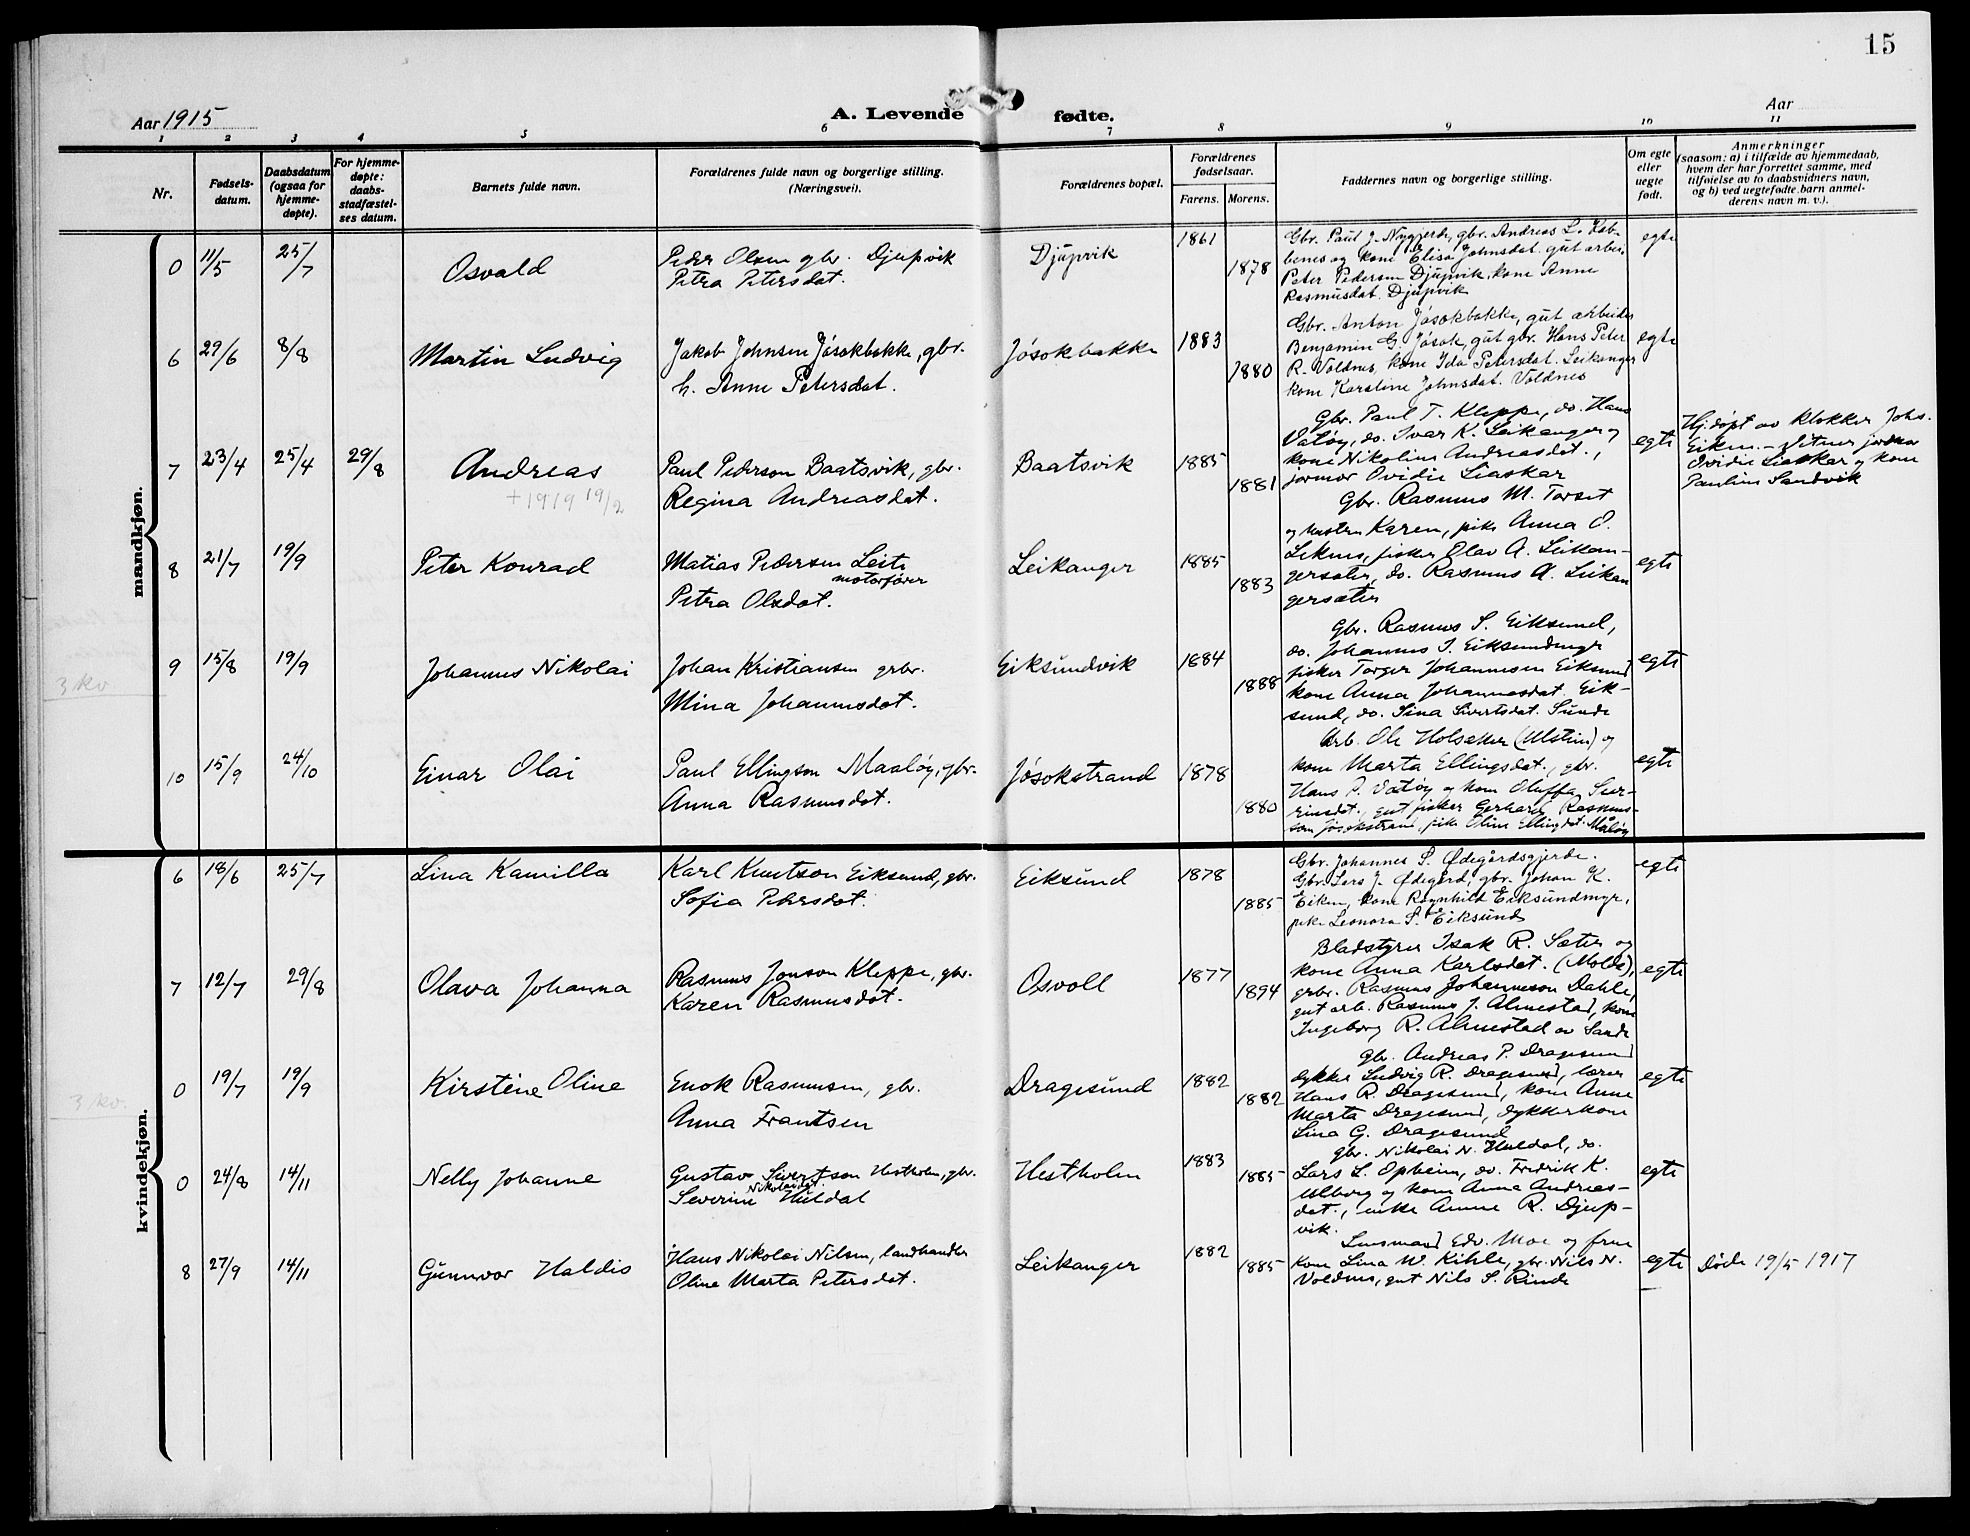 15
Aar 1915
A. Levende fødte.
Aar
1 2 3 4 5 6 7 8 9 10 11
Nr.
Fødsels-
datum.
Daabsdatum
(ogsaa for
hjemme-
døpte).
For hjemme-
døpte:
daabs-
stadfæstel-
ses datum.
Barnets fulde navn.
Forældrenes fulde navn og borgerlige stilling.
(Næringsvei).
Forældrenes bopæl.
Forældrenes
fødselsaar.
Farens. Morens.
Faddernes navn og borgerlige stilling.
Om egte
eller
uegte
født.
Anmerkninger
(saasom: a) i tilfælde av hjemmedaab,
hvem der har forrettet samme, med
tilføielse av to daabsvidners navn,
og b) ved uegtefødte barn anmel-
derens navn m. v.).
mandkjøn.
0 11/5 25/7 Osvald
Peder Olsen gbr. Djupvik
Petra Petersdat.
Djupvik 1861 1878
Gbr. Paul J. Nygjerde, gbr. Andreas L. Hab-
benes og kone Elisa Johnsdat. gut arbei.
Peter Pedersen Djupvik, kone Anne
Rasmusdat. Djupvik
egte
6 29/6 8/8 Martin Ludvig
Jakob Johnsen Jøsokbakke, gbr.
h. Anne Petersdat.
Jøsokbakke 1883 1880
Gbr. Anton Jøsokbakke, gut arbeider
Benjamin G. Jøsok, gut gbr. Hans Peter
R. Voldnes, kone Ida Petersdat. Leikanger
kone Karoline Johnsdat. Voldnes
egte
7 23/4 25/4 29/8 Andreas
+ 1919 19/2
Paul Pederson Baatsvik, gbr.
Regina Andreasdat.
Baatsvik 1885 1881
Gbr. Paul T. Kleppe, do. Hans
Vatøy, do. Ivar K. Leikanger og
kone Nikoline Andreasdat.,
jormor Ovidie Liaskar
egte
Hj.døpt av klokker Johs.
Eiken. – Vitner jordmor
Ovidie Liaskar og kone
Pauline Sandvik
8 21/7 19/9 Peter Konrad
Matias Pedersen Leite
motorfører
Petra Olsdat.
Leikanger 1885 1883
Gbr. Rasmus M. Torset
og hustru Karen, pike Anna O.
Leknes, fisker Olav A. Leikan-
gersæter, do. Rasmus A. Leikan
gersæter
egte
9 15/8 19/9 Johannes Nikolai
Johan Kristiansen grbr.
Mina Johannesdat.
Eiksundvik 1884 1888
Gbr. Rasmus S. Eiksund,
do. Johannes I. Eiksundmyr
fisker Torger Johannesen Eiksund
kone Anna Johannesdat. Eik-
sund, do. Sina Sivertsdat. Sunde
egte
3 kv.
10 15/9 24/10 Einar Olai
Paul Ellingson Maaløy, gbr.
Anna Rasmusdat.
Jøsokstrand 1878 1880
Arb. Ole Holsæker (Ulstein) og
kone Marta Ellingsdat., gbr.
Hans P. Vatøy og kone Oluffa Seve-
rinsdat., gut fisker Gerhard Rasmus-
son Jøsokstrand, pike Oline Ellingsdat. Måløy
egte
kvindekjøn.
6 18/6 25/7 Lina Kamilla
Karl Knutson Eiksund, gbr.
Sofia Petersdat.
Eiksund 1878 1885
Gbr. Johannes S. Ødegårdsgjerde.
Gbr. Lars J. Ødegård, gbr. Johan K.
Eiken, kone Ragnhild Eiksundmyr,
pike Leonora S. Eiksund
egte
7 12/7 29/8 Olava Johanna
Rasmus Jonson Kleppe, gbr.
Karen Rasmusdat.
Osvoll 1877 1894
Bladstyrer Isak R. Sæter og
kone Anna Karlsdat. (Molde),
grbr. Rasmus Johanneson Dahle,
gut arb. Rasmus J. Almestad, kone
Ingeborg R. Almestad av Sande
egte
0 19/7 19/9 Kirstine Oline
Enok Rasmusen, gbr.
Anna Frantsen
Dragesund 1882 1882
gbr. Andreas P. Dragesund
dykker Ludvig R. Dragesund, lærer
Hans R. Dragesund, kone Anne
Marta Dragesund, dykkerkone
Lina G. Dragesund
egte
3 kv.
0 24/8 14/11 Nelly Johanne
Gustav Sivertson Hestholm, gbr.
Nikolaidat.
Severine Huldal
Hestholm 1883 1885
gbr. Nikolai N. Huldal, do.
Lars L. Opheim, do. Fredrik K.
Ulborg og kone Anna Andreas-
dat., enke Anne R. Djup-
vik.
egte
8 27/9 14/11 Gunnvor Haldis
Hans Nikolai Nilsen, landhandler
Oline Marta Petersdat.
Leikanger 1882 1885
Lensmand Edv. Moe og frue
kone Lina W. Kihle, gbr. Nils N.
Voldnes, gut Nils S. Rinde
egte
Døde 19/5 1917